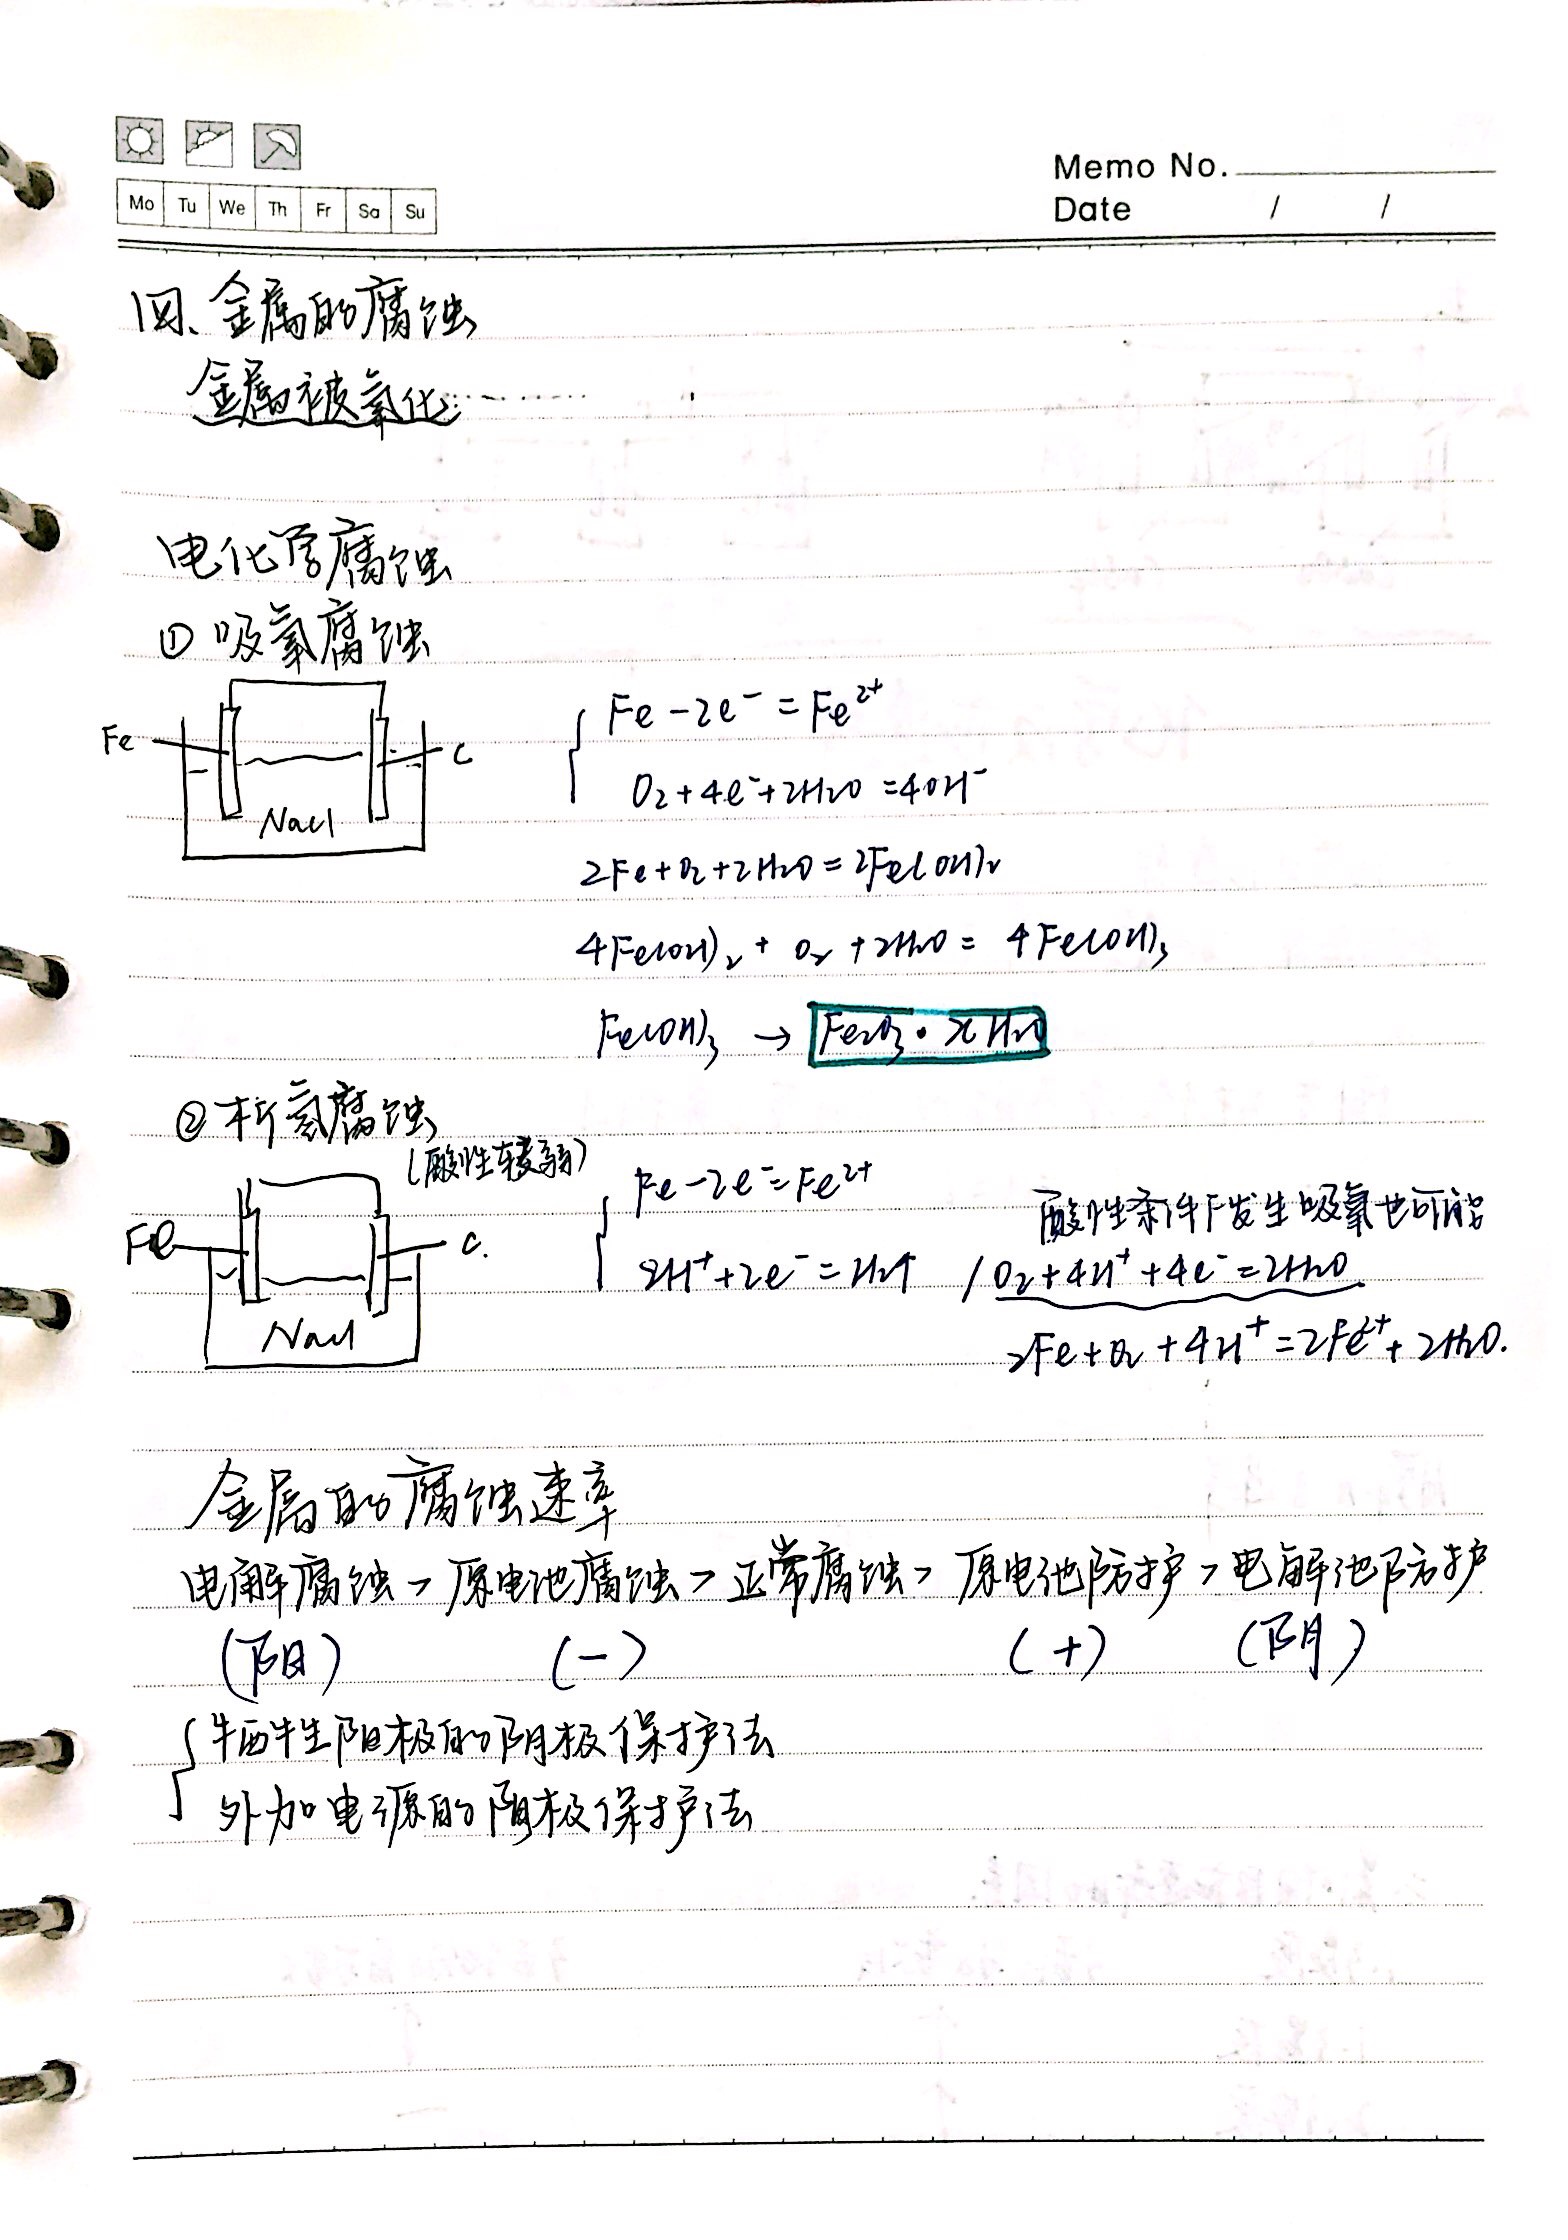 Memo No.
Mo Tu We Th Fr Sa Su
Date / /
四、金属的腐蚀
金属被氧化……
电化学腐蚀
① 吸氧腐蚀
Fe C
NaCl
Fe-2e⁻=Fe²⁺
O₂+4e⁻+2H₂O=4OH⁻
2Fe+O₂+2H₂O=2Fe(OH)₂
4Fe(OH)₂+O₂+2H₂O=4Fe(OH)₃
Fe(OH)₃ → Fe₂O₃·xH₂O
② 析氢腐蚀
(酸性较弱)
Fe C.
NaCl
Fe-2e⁻=Fe²⁺
2H⁺+2e⁻=H₂↑ / O₂+4H⁺+4e⁻=2H₂O
酸性条件下发生吸氧也可能
2Fe+O₂+4H⁺=2Fe²⁺+2H₂O.
金属的腐蚀速率
电解腐蚀>原电池腐蚀>正常腐蚀>原电池防护>电解池防护
(阳) (-) (+) (阴)
牺牲阳极的阴极保护法
外加电源的阴极保护法